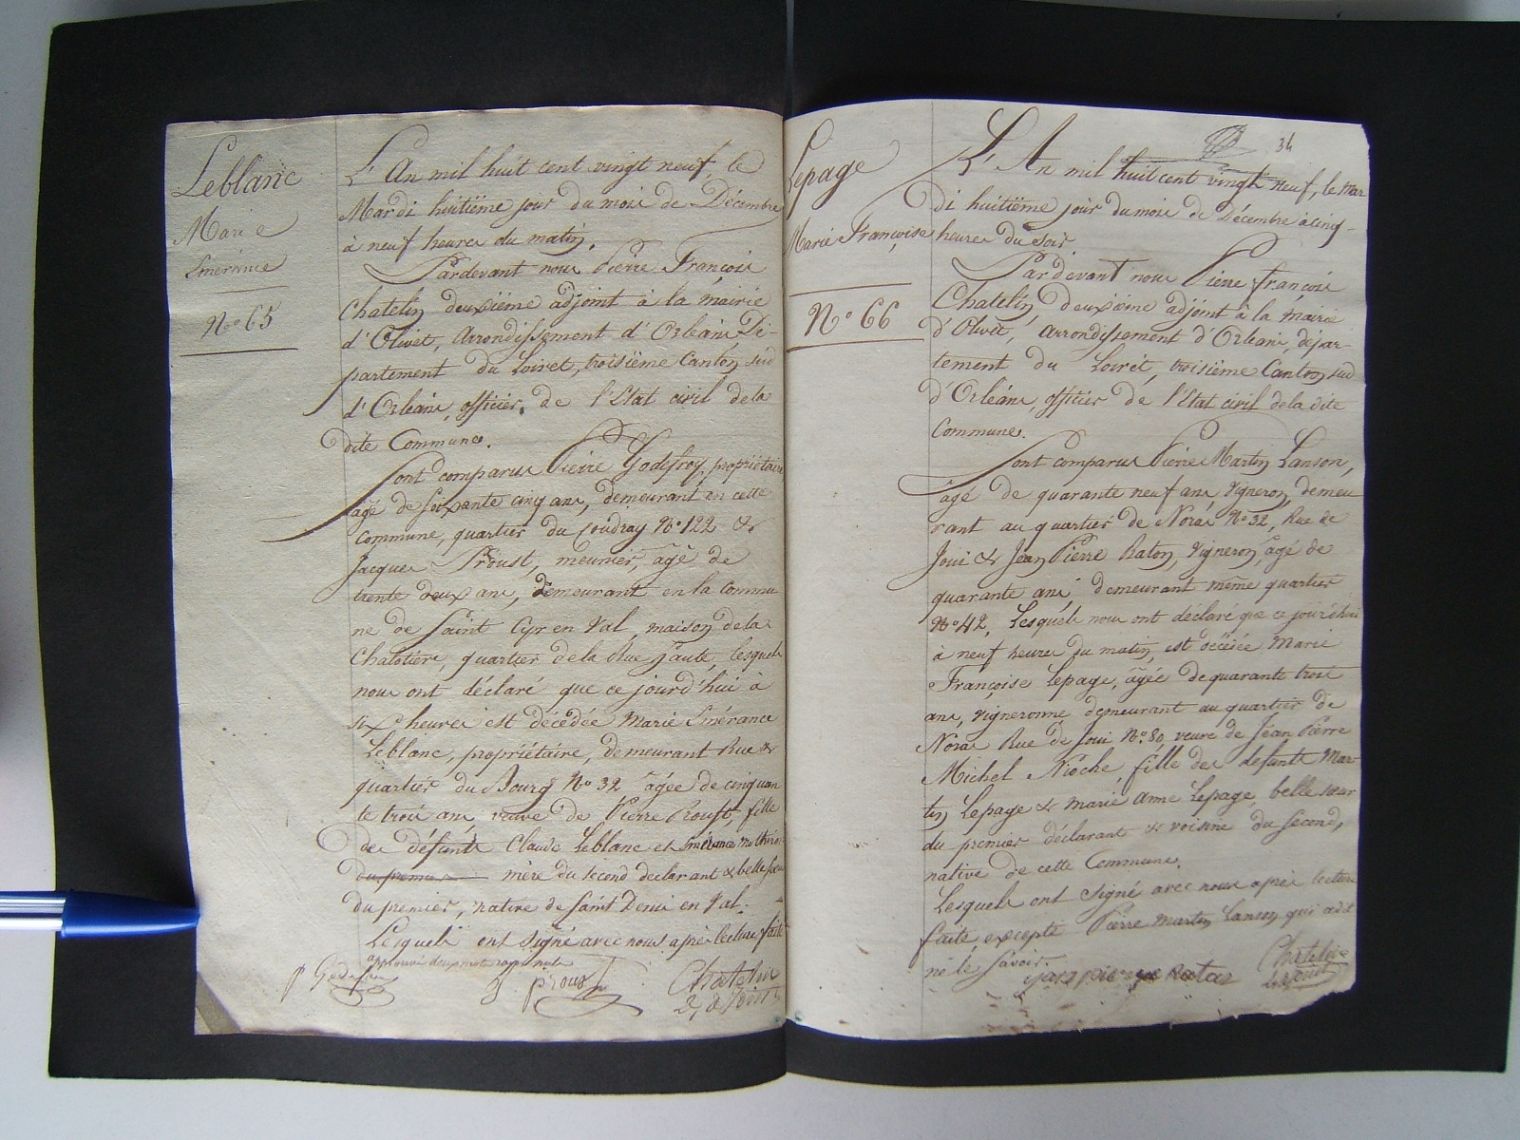 Leblanc
Marie
Smérance
N.o 65
L'An mil huit cent vingt neuf, le
Mardi huitième jour du mois de Décembre
à neuf heures du matin.
Pardevant nous Pierre François
Chatelin deuxième adjoint à la mairie
d'Olivet, arrondissement d'Orléans Dé-
partement du Loiret, troisième Canton sud
d'Orléans, officier de l'Etat civil de la
dite Commune.
Sont comparus Pierre Godefroy, propriétaire
agé de soixante cinq ans, demeurant en cette
Commune, quartier du Coudray N.o 122 &
Jacques Proust, meunier, agé de
trente deux ans, demeurant en la commu
ne de Saint Cyr en Val, maison de la
quartier de la Rue lesquels
nous ont déclaré que ce jourd'hui à
six heures est décédée Marie Smérance
Leblanc, propriétaire, demeurant Rue &
quartier du Bourg N.o 32 agée de cinquan
te trois ans, veuve de Pierre Proust, fille
de défunts Claude Leblanc et Smérance
du premier mère du second déclarant & belle soeur
du premier, native de Saint Denis en Val.
Lesquels ont signé avec nous après lecture faite
approuvé deux mots rayés nuls
p Godefroy
J proust
Chatelin
2e adjoint
34
Lepage
Marie Françoise
N.o 66
L'An mil huit cent vingt neuf, le mar
di huitième jour du mois de Décembre à cinq
heures du soir
Pardevant nous Pierre François
Chatelin, deuxième adjoint à la mairie
d'Olivet, arrondissement d'Orléans, dépar-
tement du Loiret, troisième Canton sud
d'Orléans, officier de l'Etat civil de la dite
Commune.
Sont comparus Pierre Martin Lanson,
âgé de quarante neuf ans Vigneron, demeu
rant au quartier de Noras N.o 32, Rue de
Joui & Jean Pierre Raton, Vigneron, âgé de
quarante ans demeurant même quartier
N.o 42, Lesquels nous ont déclaré que ce jourd'hui
à neuf heures du matin, est décédée Marie
Françoise Lepage, âgée de quarante trois
ans, Vigneronne demeurant au quartier de
Noras Rue de Joui N.o 80 veuve de Jean Pierre
Michel Nioche, fille de defunts Mar-
tin Lepage & Marie Anne Lepage, belle soeur
du premier déclarant & voisine du second,
native de cette Commune.
Lesquels ont signé avec nous après lecture
faite, excepté Pierre Martin Lanson qui a dit
ne le savoir.
jean pierre Raton
Chatelin
2e adjoint